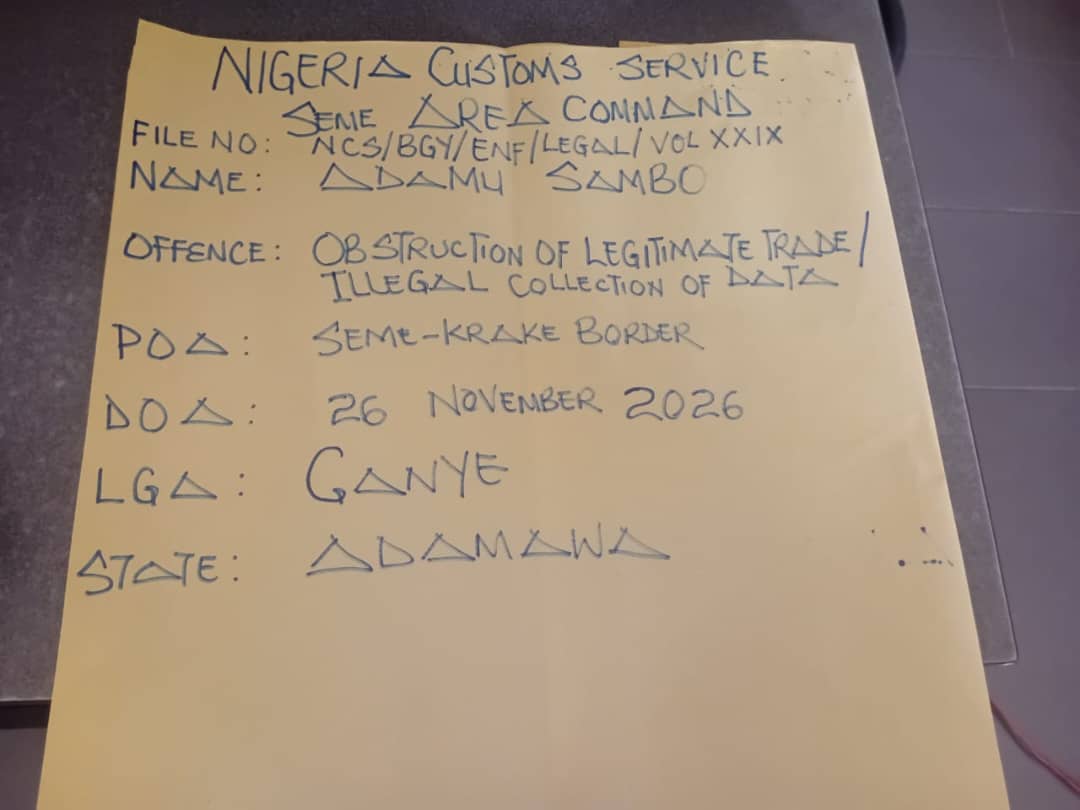 NIGERIA CUSTOMS SERVICE
SEME AREA COMMAND
FILE NO: NCS/BGY/ENF/LEGAL/VOL XXIX
NAME: ADAMU SAMBO
OFFENCE: OBSTRUCTION OF LEGITIMATE TRADE/
ILLEGAL COLLECTION OF DATA
POA: SEME-KRAKE BORDER
DOA: 26 NOVEMBER 2026
LGA: GANYE
STATE: ADAMAWA